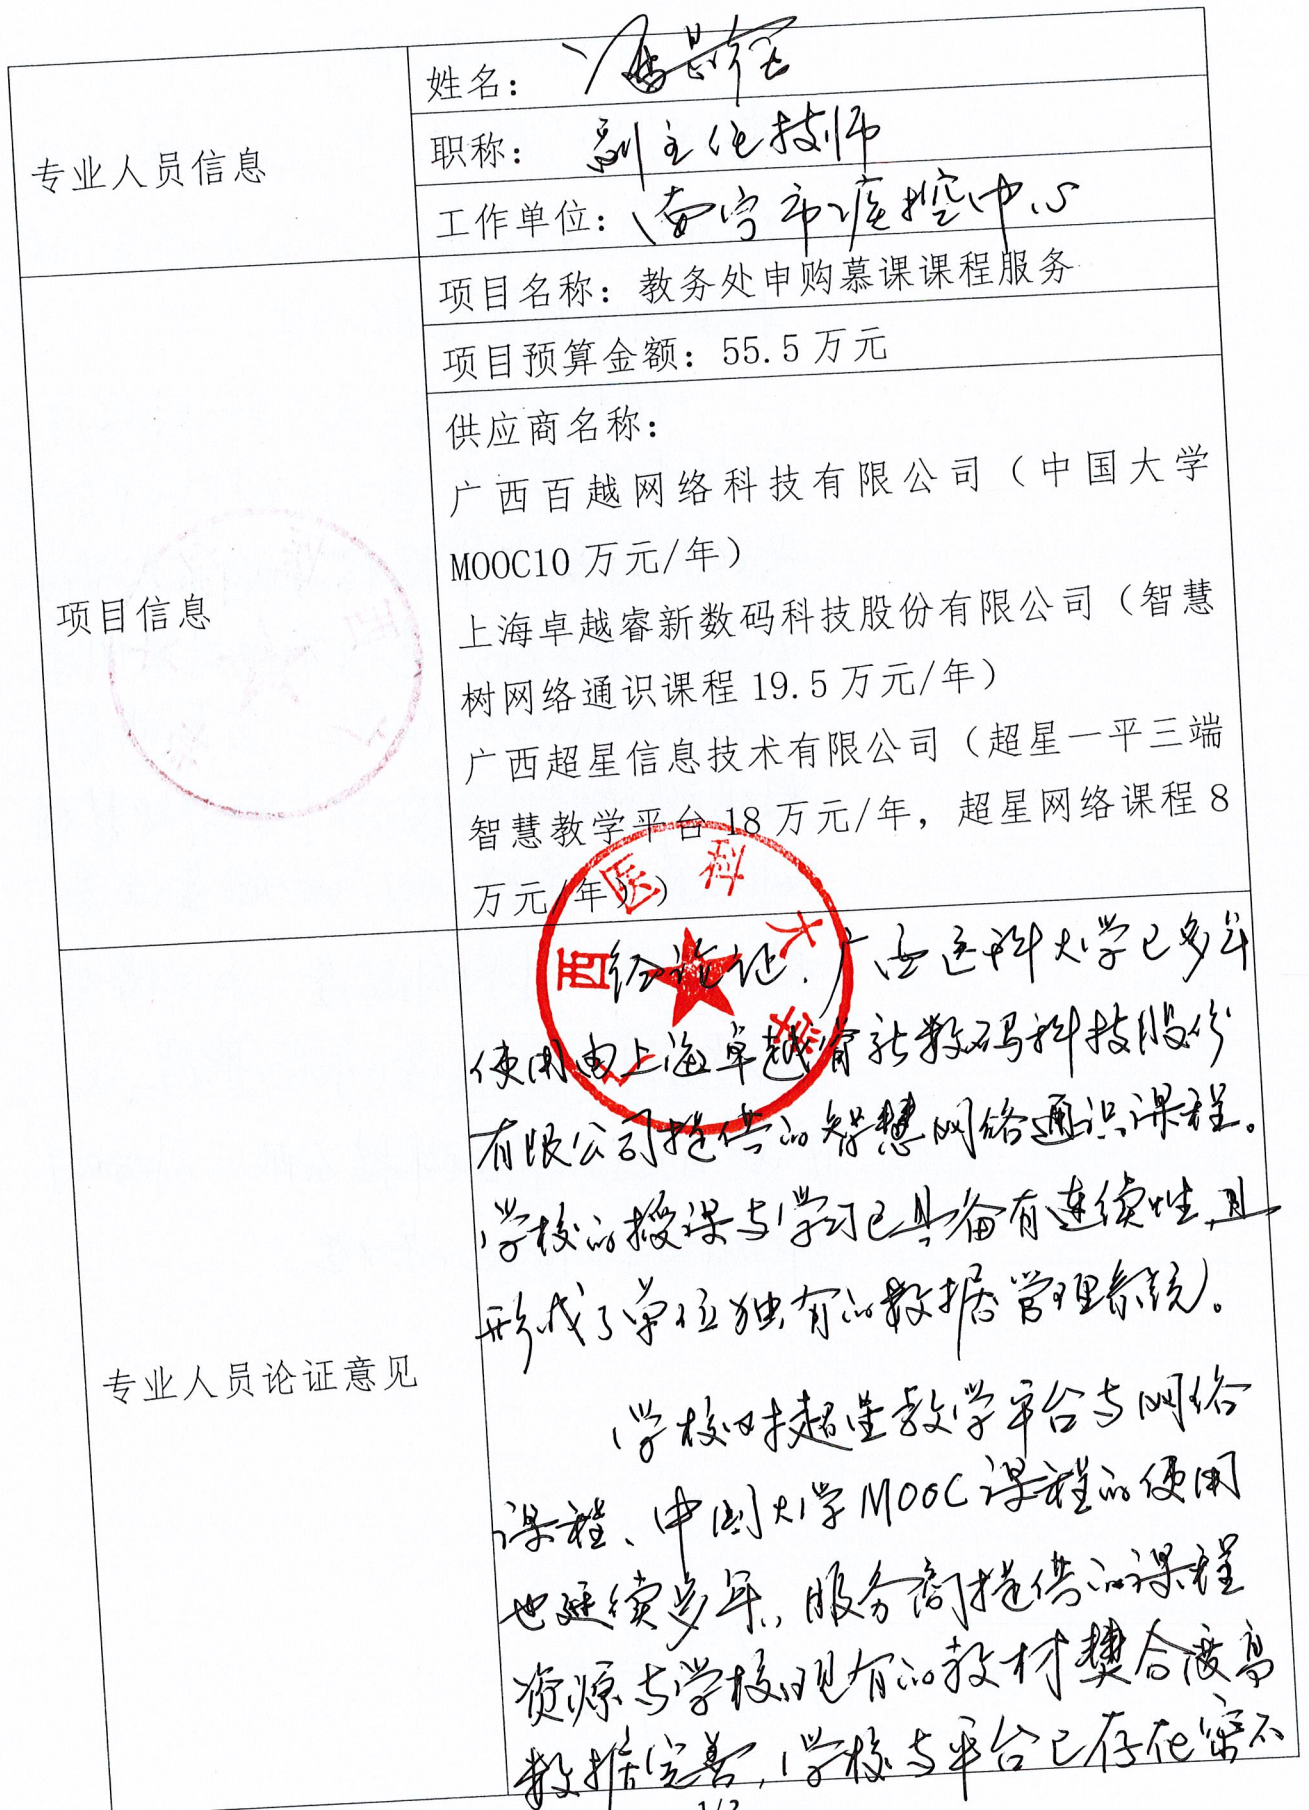 专业人员信息
姓名：
职称： 副主任技师
工作单位： 南宁市疾控中心
项目信息
项目名称：教务处申购慕课课程服务
项目预算金额：55.5万元
供应商名称：
广西百越网络科技有限公司（中国大学
MOOC10万元/年）
上海卓越睿新数码科技股份有限公司（智慧
树网络通识课程19.5万元/年）
广西超星信息技术有限公司（超星一平三端
智慧教学平台18万元/年，超星网络课程8
万元/年））
西医科大学
专业人员论证意见
经论证，广西医科大学已多年
使用由上海卓越睿新数码科技股份
有限公司提供的智慧网络通识课程。
学校的授课与学习已具备有连续性，且
形成了单位独有的数据管理系统。
学校对超星教学平台与网络
课程、中国大学MOOC课程的使用
也延续多年，服务商提供的课程
资源与学校现有的教材契合度高
数据完善，学校与平台已存在密不
1/2